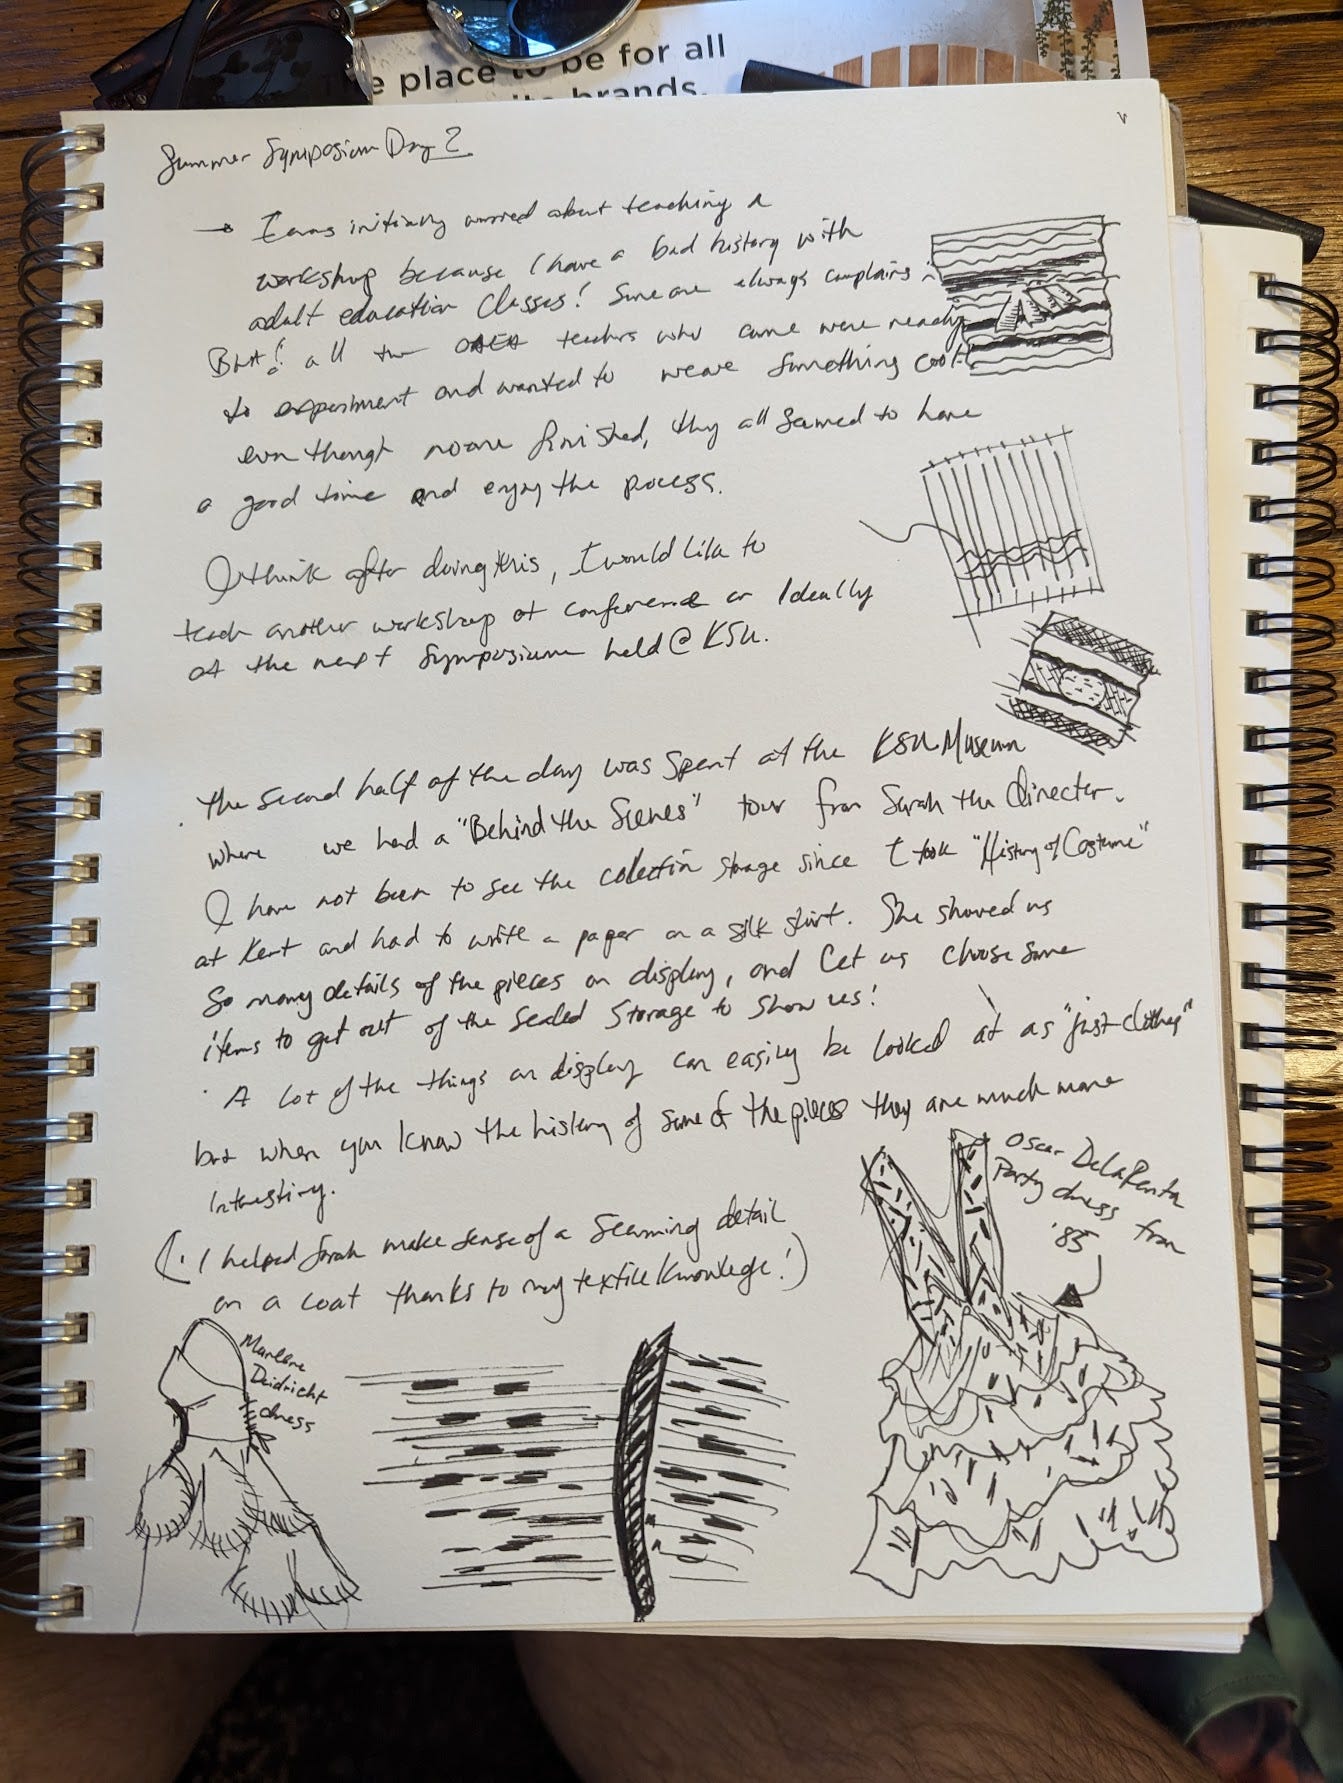 The place to be for all
brands.
Summer Symposium Day 2
→ I was initially worried about teaching a
workshop because I have a bad history with
adult education classes! Someone always complains
But! all the teachers who came were ready
to experiment and wanted to weave something cool.
even though noone finished, they all seemed to have
a good time and enjoy the process.
I think after doing this, I would like to
teach another workshop at conference or Ideally
at the next Symposium held @ KSU.
The second half of the day was spent at the KSU Museum
where we had a "Behind the Scenes" tour from Sarah the Director.
I have not been to see the colection storage since I took "History of Costume"
at Kent and had to write a paper on a silk shirt. She showed us
So many details of the pieces on display, and Let us choose some
items to get out of the Sealed Storage to show us!
· A lot of the things on display can easily be looked at as "just clothes"
but when you know the history of some of the pieces they are much more
Interesting.
(· I helped Sarah make sense of a Seaming detail
on a coat thanks to my textile knowlege!)
Oscar DeLaRenta
Party dress from
'85
Marlene
Deidricht
dress